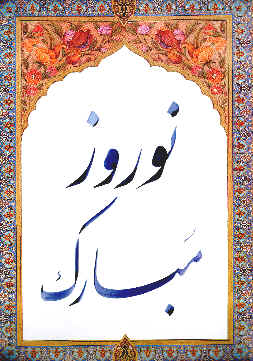 نوروز
مبارک